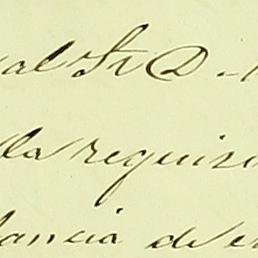 al Sr D.
la requisi
tancia de e